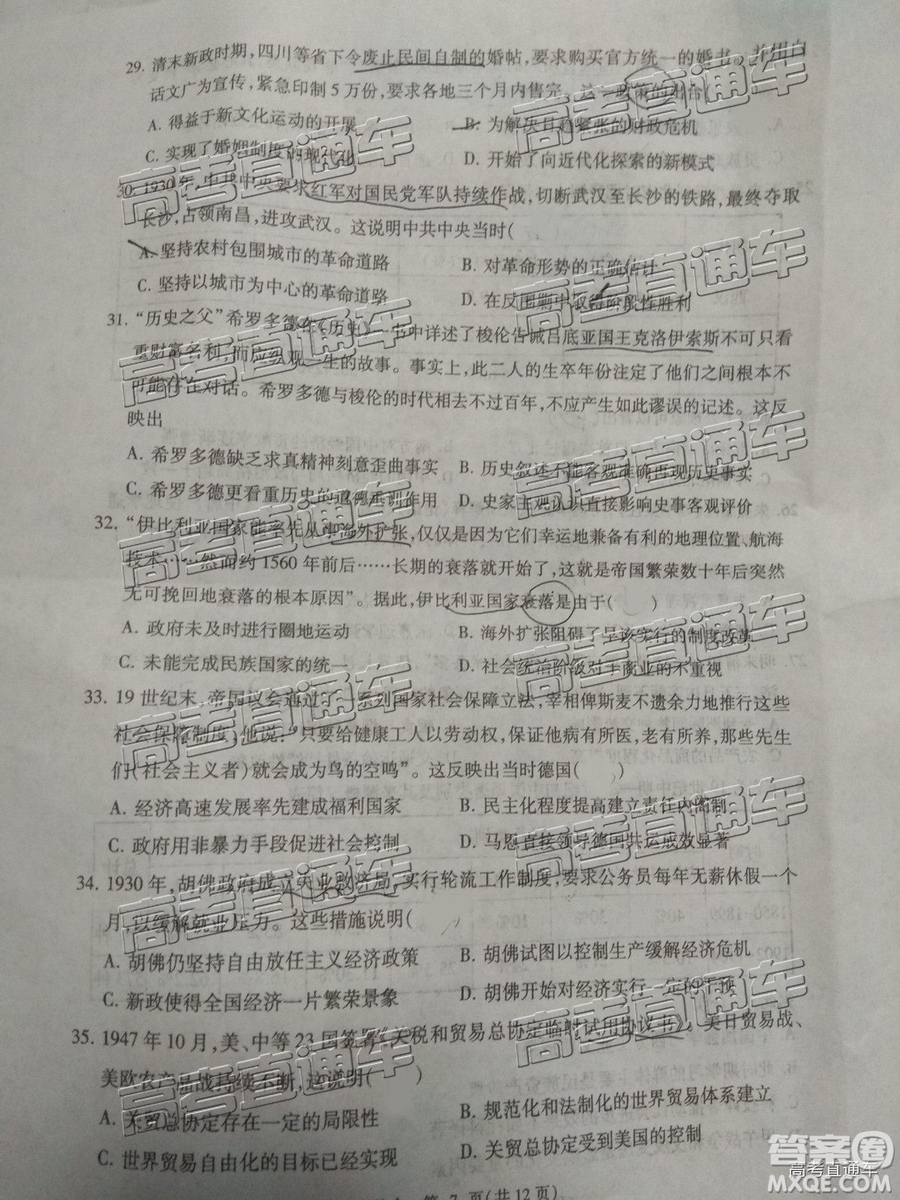 29. 清末新政时期，四川等省下令废止民间自制的婚帖，要求购买官方统一的婚书。并用白
话文广为宣传，紧急印制5万份，要求各地三个月内售完。这一政策的出台(
A. 得益于新文化运动的开展 B. 为解决日趋紧张的财政危机
C. 实现了婚姻制度的现代化 D. 开始了向近代化探索的新模式
30. 1930年，中共中央要求红军对国民党军队持续作战，切断武汉至长沙的铁路，最终夺取
长沙，占领南昌，进攻武汉。这说明中共中央当时(
A. 坚持农村包围城市的革命道路 B. 对革命形势的正确估计
C. 坚持以城市为中心的革命道路 D. 在反围剿中取得阶段性胜利
31. “历史之父”希罗多德在《历史》一书中详述了梭伦告诫吕底亚国王克洛伊索斯不可只看
重财富名利，而应综观一生的故事。事实上，此二人的生卒年份注定了他们之间根本不
可能存在对话。希罗多德与梭伦的时代相去不过百年，不应产生如此谬误的记述。这反
映出
A. 希罗多德缺乏求真精神刻意歪曲事实 B. 历史叙述不能客观准确再现历史事实
C. 希罗多德更看重历史的道德垂训作用 D. 史家主观认识直接影响史事客观评价
32. “伊比利亚国家能率先从事海外扩张，仅仅是因为它们幸运地兼备有利的地理位置、航海
技术……然而约1560年前后……长期的衰落就开始了，这就是帝国繁荣数十年后突然
无可挽回地衰落的根本原因”。据此，伊比利亚国家衰落是由于( )
A. 政府未及时进行圈地运动 B. 海外扩张阻碍了早该实行的制度改革
C. 未能完成民族国家的统一 D. 社会统治阶级对工商业的不重视
33. 19世纪末，帝国议会通过了一系列国家社会保障立法，宰相俾斯麦不遗余力地推行这些
社会保险制度，他说，“只要给健康工人以劳动权，保证他病有所医，老有所养，那些先生
们(社会主义者)就会成为鸟的空鸣”。这反映出当时德国( )
A. 经济高速发展率先建成福利国家 B. 民主化程度提高建立责任内阁制
C. 政府用非暴力手段促进社会控制 D. 马恩直接领导德国共运成效显著
34. 1930年，胡佛政府成立失业救济局，实行轮流工作制度，要求公务员每年无薪休假一个
月，以缓解就业压力。这些措施说明(
A. 胡佛仍坚持自由放任主义经济政策 B. 胡佛试图以控制生产缓解经济危机
C. 新政使得全国经济一片繁荣景象 D. 胡佛开始对经济实行一定的干预
35. 1947年10月，美、中等23国签署《关税和贸易总协定临时试用协议书》。美日贸易战、
美欧农产品战持续不断，这说明( )
A. 关贸总协定存在一定的局限性 B. 规范化和法制化的世界贸易体系建立
C. 世界贸易自由化的目标已经实现 D. 关贸总协定受到美国的控制
第 7 页(共12页)
高考直通车
高考直通车
高考直通车
高考直通车
高考直通车
高考直通车
高考直通车
高考直通车
高考直通车
高考直通车
答案圈
高考直通车
MXQE.COM